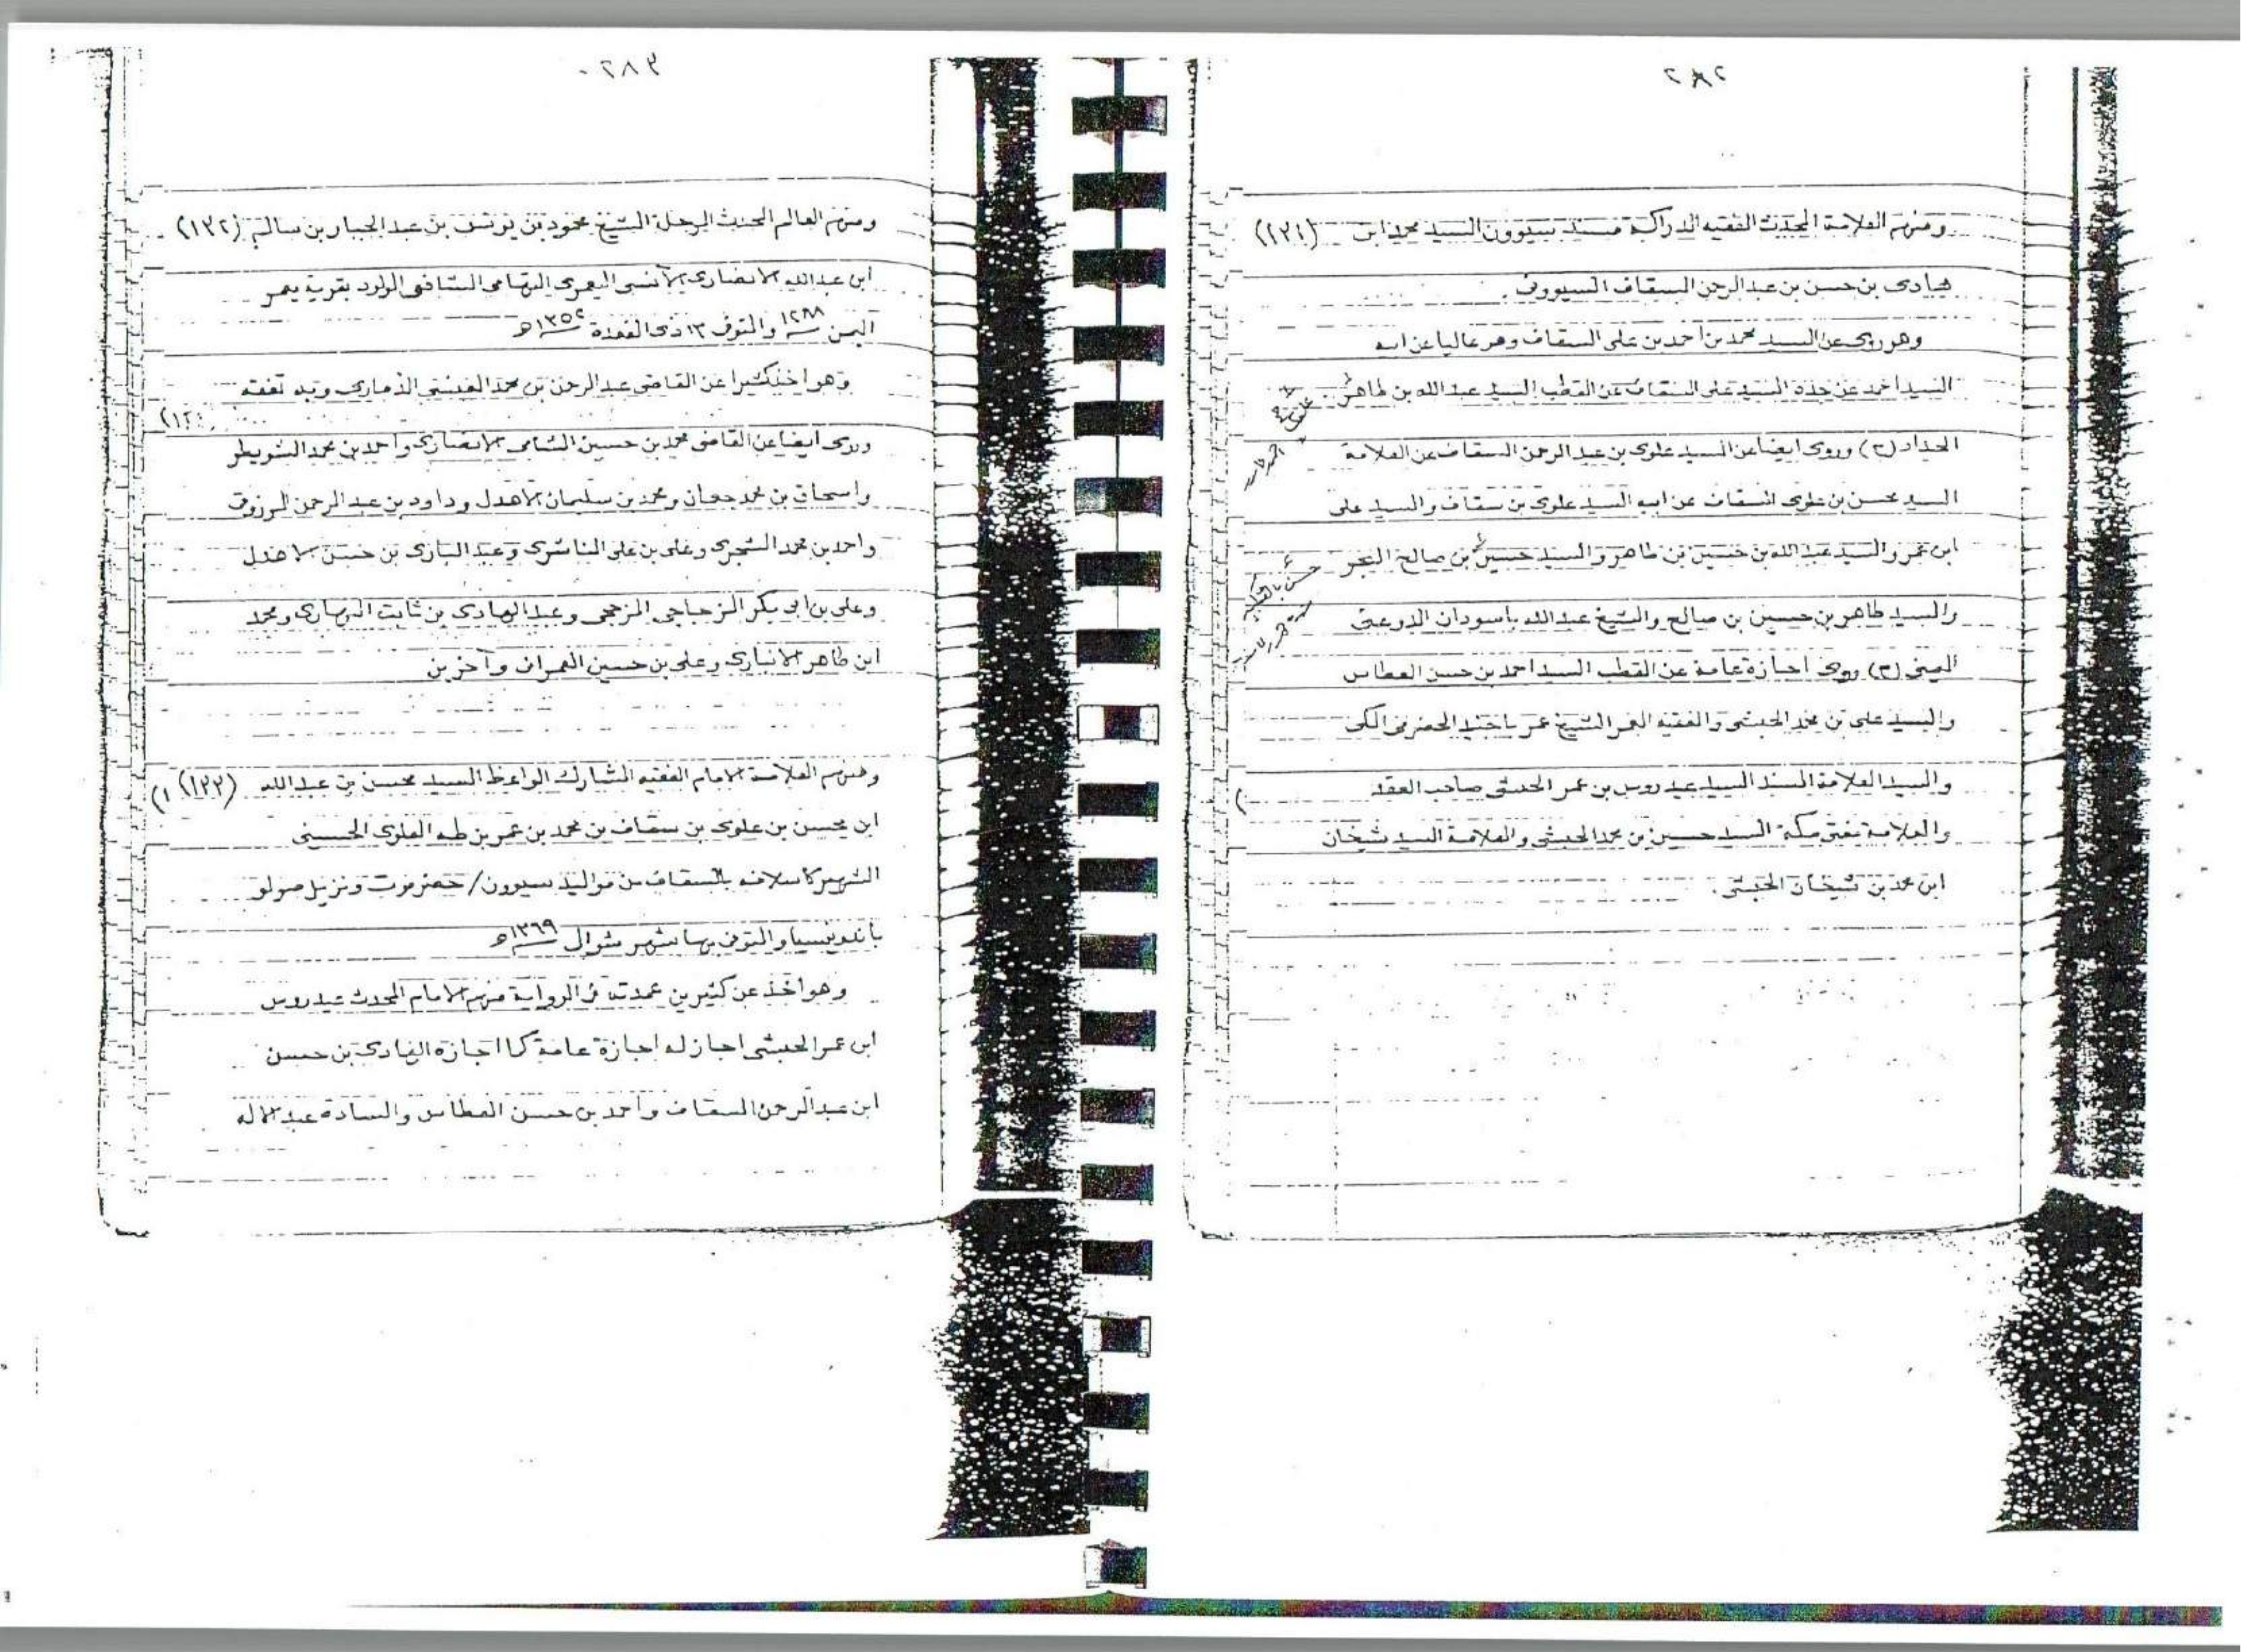 ٢٨٢
ومنهم العلامة المحدث الفقيه الدراكة مسند سيوون السيد محمد ابن (١٣١)
هادى بن حسن بن عبدالرحمن السقاف السيووى
وهو روى عن السيد محمد بن احمد بن على السقاف وهو عاليا عن ابيه
السيد احمد عن جده السيد على السقاف عن القطب السيد عبد الله بن طاهر
الحداد (ح) وروى ايضا عن السيد علوى بن عبد الرحمن السقاف عن العلامة
السيد محسن بن علوى السقاف عن ابيه السيد علوى بن سقاف والسيد على
ابن عمر والسيد عبد الله بن حسين بن طاهر والسيد حسين بن صالح البحر
والسيد طاهر بن حسين بن صالح والشيخ عبدالله باسودان الدوعنى
اليمنى (ح) روى اجازة عامة عن القطب السيد احمد بن حسن العطاس
والسيد على بن محمد الحبشى والفقيه المعمر الشيخ عمر باجنيد الحضرمى المكى
والسيد العلامة المسند السيد عيدروس بن عمر الحبشى صاحب العقد
والعلامة مفتى مكة السيد حسين بن محمد الحبشى والعلامة السيد شيخان
ابن محمد بن شيخان الحبشى.
٢٨٣
ومنهم العالم المحدث الرحلة الشيخ محمود بن يوسف بن عبد الجبار بن سالم (١٣٢)
ابن عبدالله الانصارى الآنسى اليعمرى التهامى الشافعى المولود بقرية يعمر
اليمن ١٢٨٨ والمتوفى ١٣ ذى القعدة ١٣٥٢هـ
وهو اخذ كثيرا عن القاضى عبد الرحمن بن محمد العنسى الذمارى وبه تفقه
وروى ايضا عن القاضى محمد بن حسين الشامى الانصارى واحمد بن محمد الشويطر
واسحاق بن محمد جعمان ومحمد بن سليمان الاهدل وداود بن عبد الرحمن المرزوقى
واحمد بن محمد الشجرى وعلى بن على الناشرى وعبد البارى بن حسن الاهدل
وعلى بن ابى بكر الزجاجى المزجى وعبد الهادى بن ثابت النهارى ومحمد
ابن طاهر الانبارى وعلى بن حسين العمرانى وآخرين
ومنهم العلامة الامام الفقيه المشارك الواعظ السيد محسن بن عبدالله (١٣٣)
ابن محسن بن علوى بن سقاف بن محمد بن عمر بن طه العلوى الحسينى
الشهير كاسلافه بالسقاف من مواليد سيوون/ حضرموت ونزيل صولو
باندونيسيا والمتوفى بها شهر شوال ١٣٦٩هـ
وهو اخذ عن كثيرين عمدته فى الرواية منهم الامام المحدث عيدروس
ابن عمر الحبشى اجاز له اجازة عامة كما اجازه الهادى بن حسن
ابن عبد الرحمن السقاف واحمد بن حسن العطاس والسادة عبد الاله